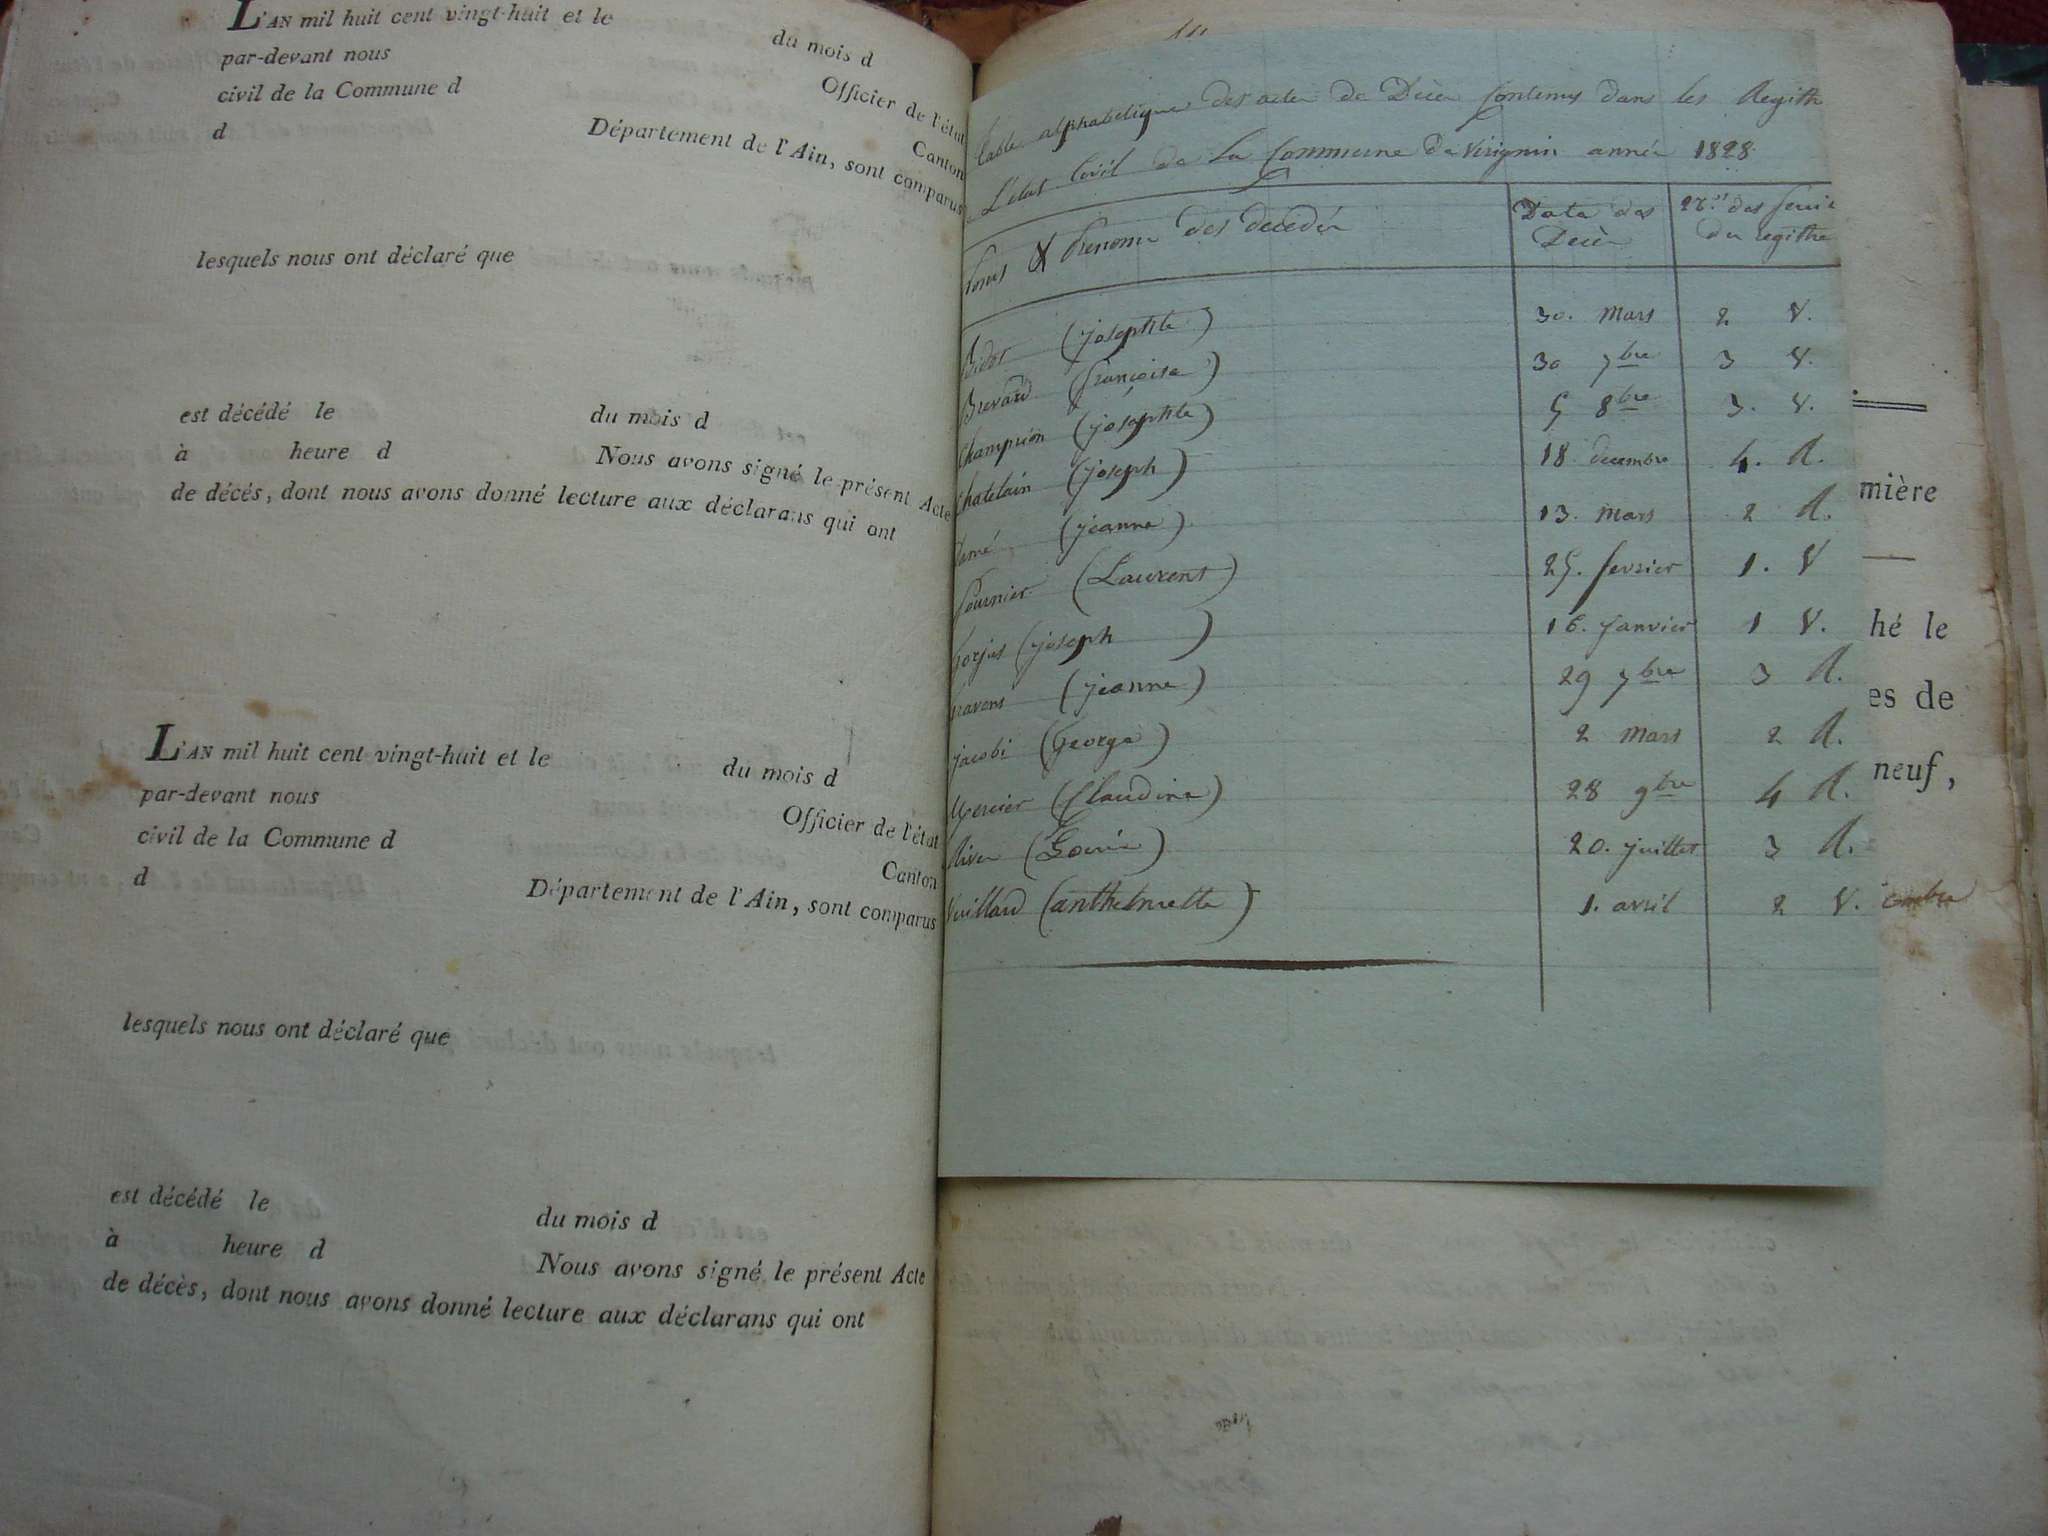 L'AN mil huit cent vingt-huit et le du mois d
par-devant nous Officier de l'état
civil de la Commune d Canton
d Département de l'Ain, sont comparus
lesquels nous ont déclaré que
est décédé le du mois d
à heure d Nous avons signé le présent Acte
de décés, dont nous avons donné lecture aux déclarans qui ont
L'AN mil huit cent vingt-huit et le du mois d
par-devant nous Officier de l'état
civil de la Commune d Canton
d Département de l'Ain, sont comparus
lesquels nous ont déclaré que
est décédé le du mois d
à heure d Nous avons signé le présent Acte
de décès, dont nous avons donné lecture aux déclarans qui ont
Table alphabetique des actes de Décès Contenus dans les Registre
L'etat Civil de La Commune de Virignin année 1828
Noms & Prenoms des decedés Date des Decès Nos. des feuil du registre
Bidot (josephte) 30. Mars 2 V.
Brevard (françoise) 30 7bre 3 V.
Champion (josephte) 5 8bre 3. V.
Chatelain (joseph) 18. decembre 4. R.
(jeanne) 13. Mars 2 R.
fournier (Laurent) 25. fevrier 1. V
Gorjus (joseph) 16. janvier 1 V.
(jeanne) 29 7bre 3 R.
jacobi (George) 2 Mars 2 R.
Mercier (Claudine) 28 9bre 4 R.
Rive 20. juillet 3 R.
Vuillard (anthelmette) 1. avril 2 V.
mière
hé le
es de
neuf,
embre